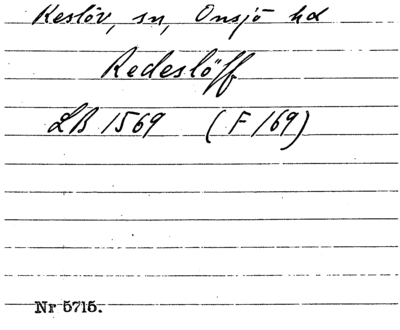 Reslöv, sn, Onsjö hd
Redeslöff
LB 1569 (F 169)
Nr 5715.